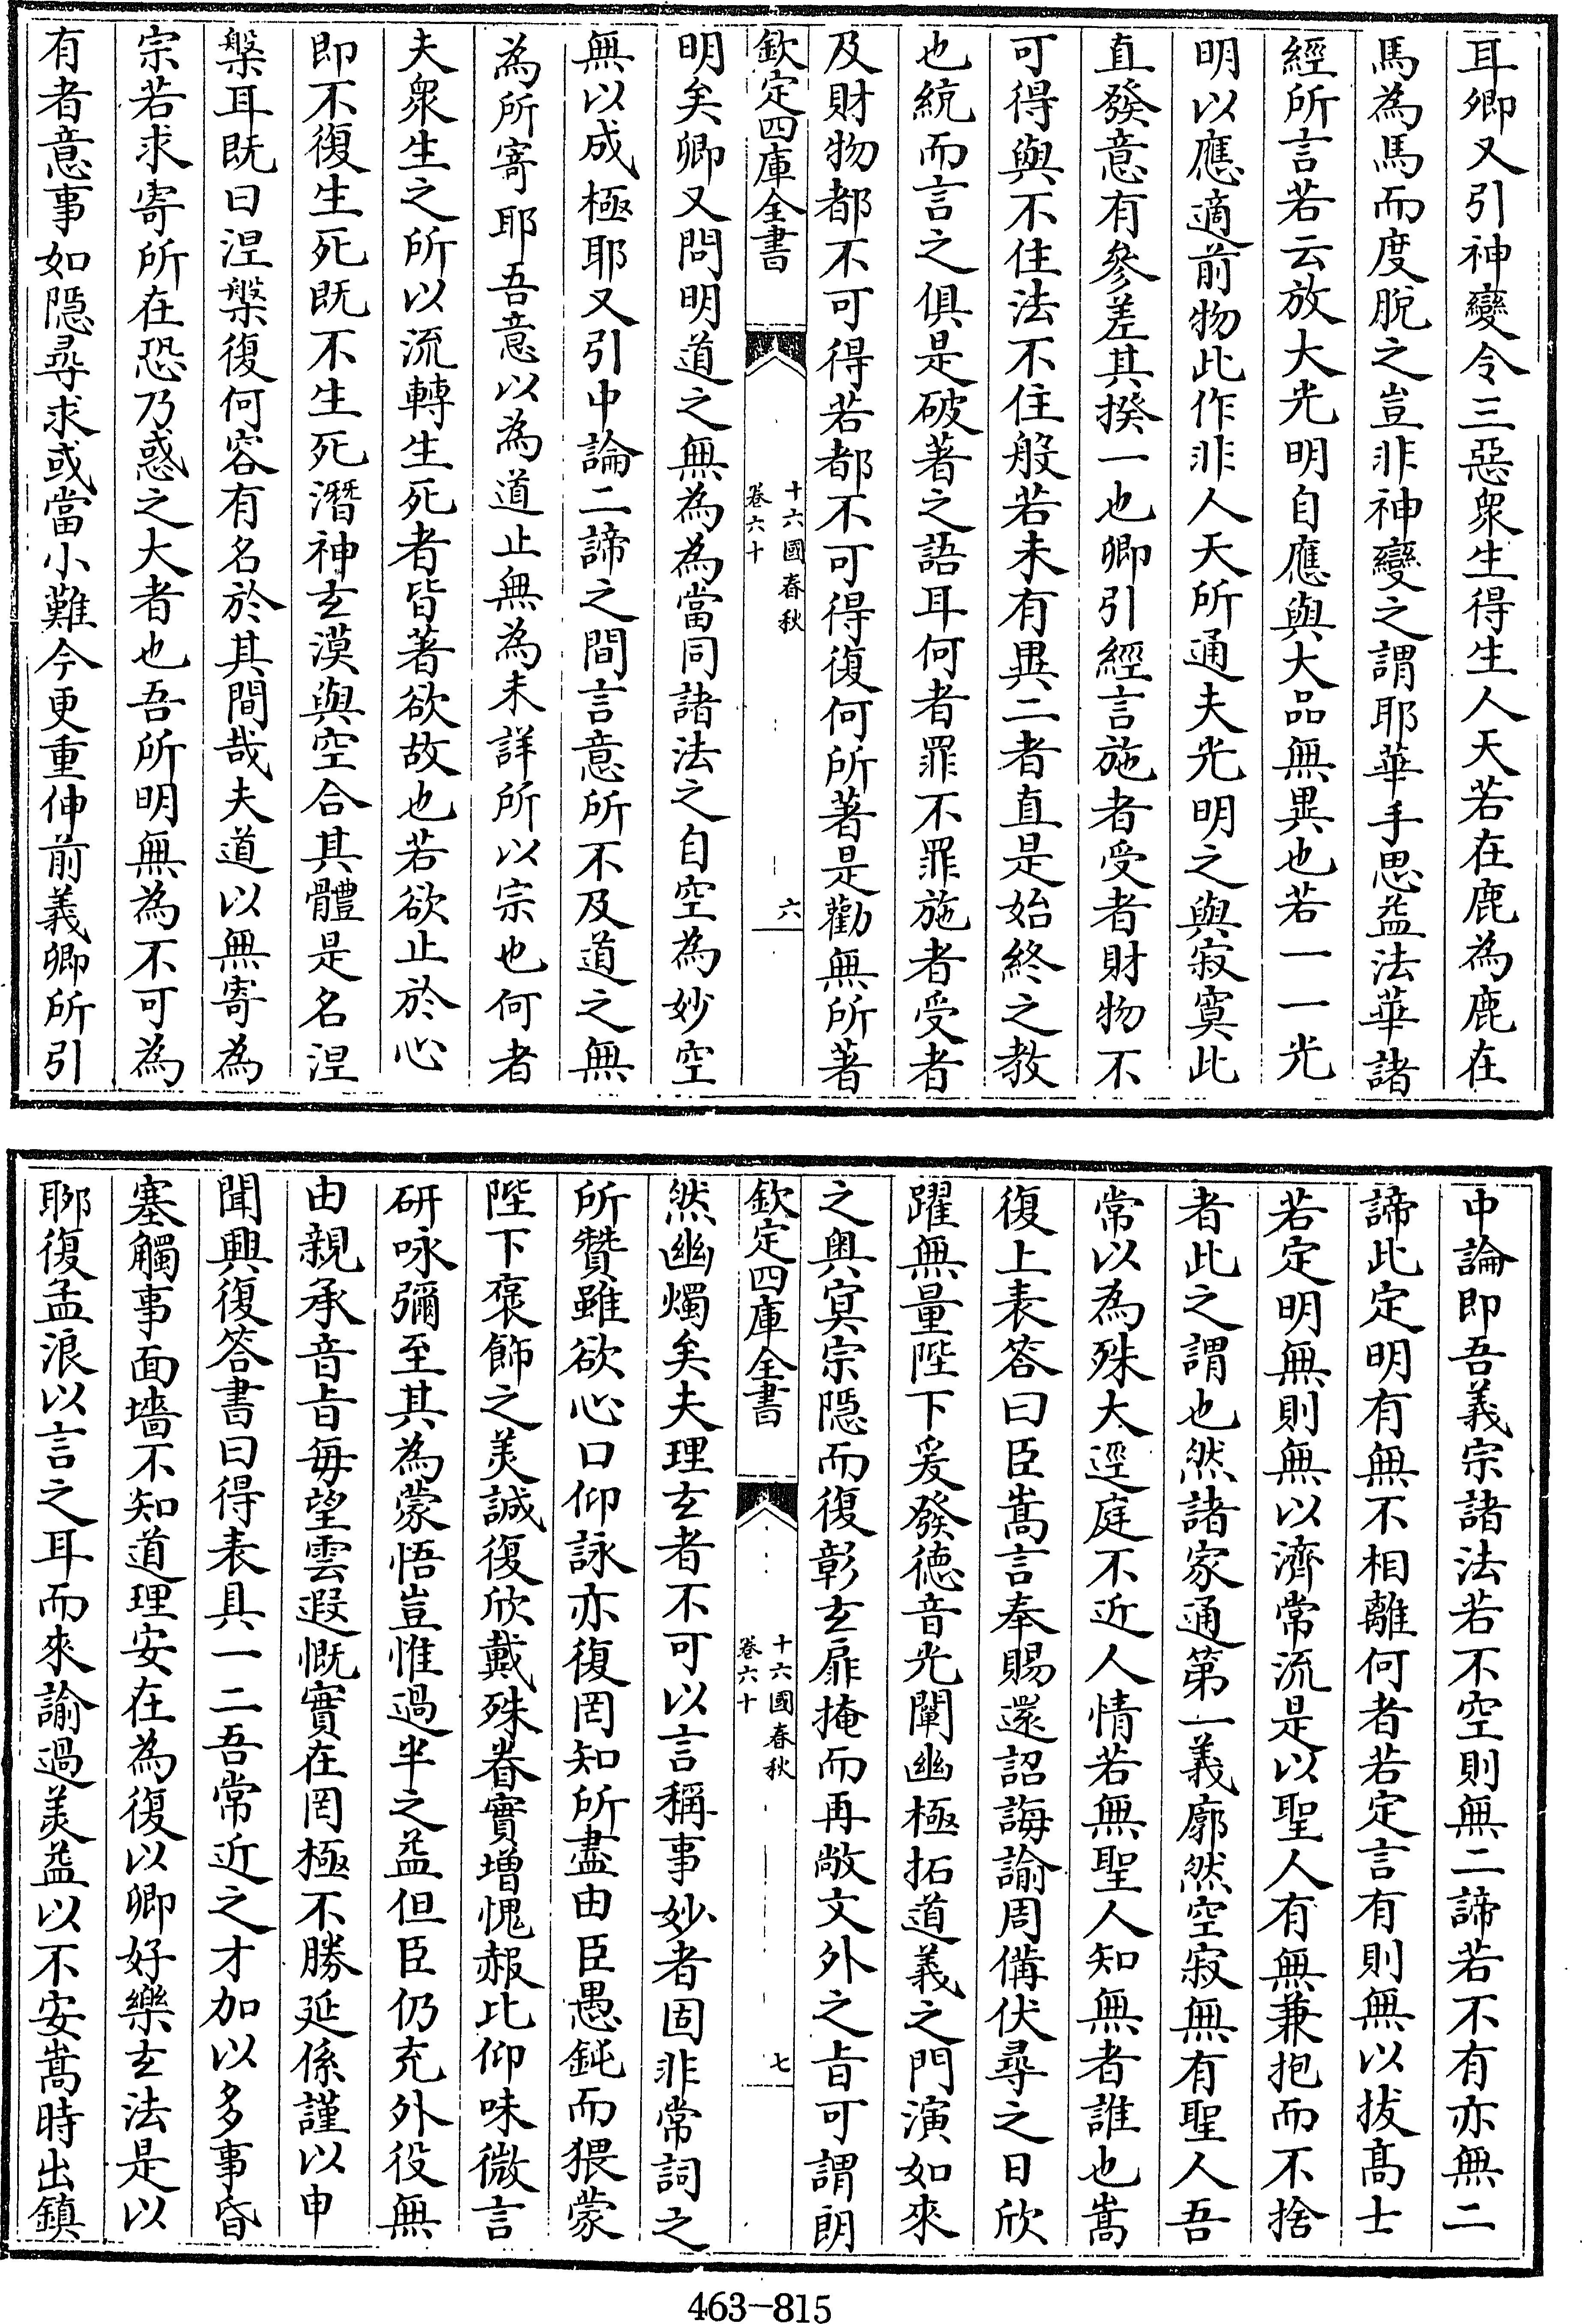 耳卿又引神變令三惡衆生得生人天若在鹿為鹿在
馬為馬而度脫之豈非神變之謂耶華手思益法華諸
經所言若云放大光明自應與大品無異也若一一光
明以應適前物此作非人天所通夫光明之與寂寞此
直發意有參差其揆一也卿引經言施者受者財物不
可得與不住法不住般若未有異二者直是始終之教
也統而言之俱是破著之語耳何者罪不罪施者受者
及財物都不可得若都不可得復何所著是勸無所著
欽定四庫全書
十六國春秋
卷六十
六
明矣卿又問明道之無為為當同諸法之自空為妙空
無以成極耶又引中論二諦之間言意所不及道之無
為所寄耶吾意以為道止無為未詳所以宗也何者
夫衆生之所以流轉生死者皆著欲故也若欲止於心
即不復生死既不生死潛神玄漠與空合其體是名涅
槃耳既曰涅槃復何容有名於其間哉夫道以無寄為
宗若求寄所在恐乃惑之大者也吾所明無為不可為
有者意事如隱尋求或當小難今更重伸前義卿所引
中論即吾義宗諸法若不空則無二諦若不有亦無二
諦此定明有無不相離何者若定言有則無以拔高士
若定明無則無以濟常流是以聖人有無兼抱而不捨
者此之謂也然諸家通第一義廓然空寂無有聖人吾
常以為殊大逕庭不近人情若無聖人知無者誰也嵩
復上表答曰臣嵩言奉賜還詔誨諭周備伏尋之日欣
躍無量陛下爰發德音光闡幽極拓道義之門演如來
之奧冥宗隱而復彰玄扉掩而再敞文外之旨可謂朗
欽定四庫全書
十六國春秋
卷六十
七
然幽燭矣夫理玄者不可以言稱事妙者固非常詞之
所贊雖欲心口仰詠亦復罔知所盡由臣愚鈍而猥蒙
陛下褒飾之美誠復欣戴殊眷實增愧赧比仰味微言
研咏彌至其為蒙悟豈惟過半之益但臣仍充外役無
由親承音旨每望雲遐慨實在罔極不勝延係謹以申
聞興復答書曰得表具一二吾常近之才加以多事昏
塞觸事面墻不知道理安在為復以卿好樂玄法是以
聊復孟浪以言之耳而來諭過美益以不安嵩時出鎮
463-815